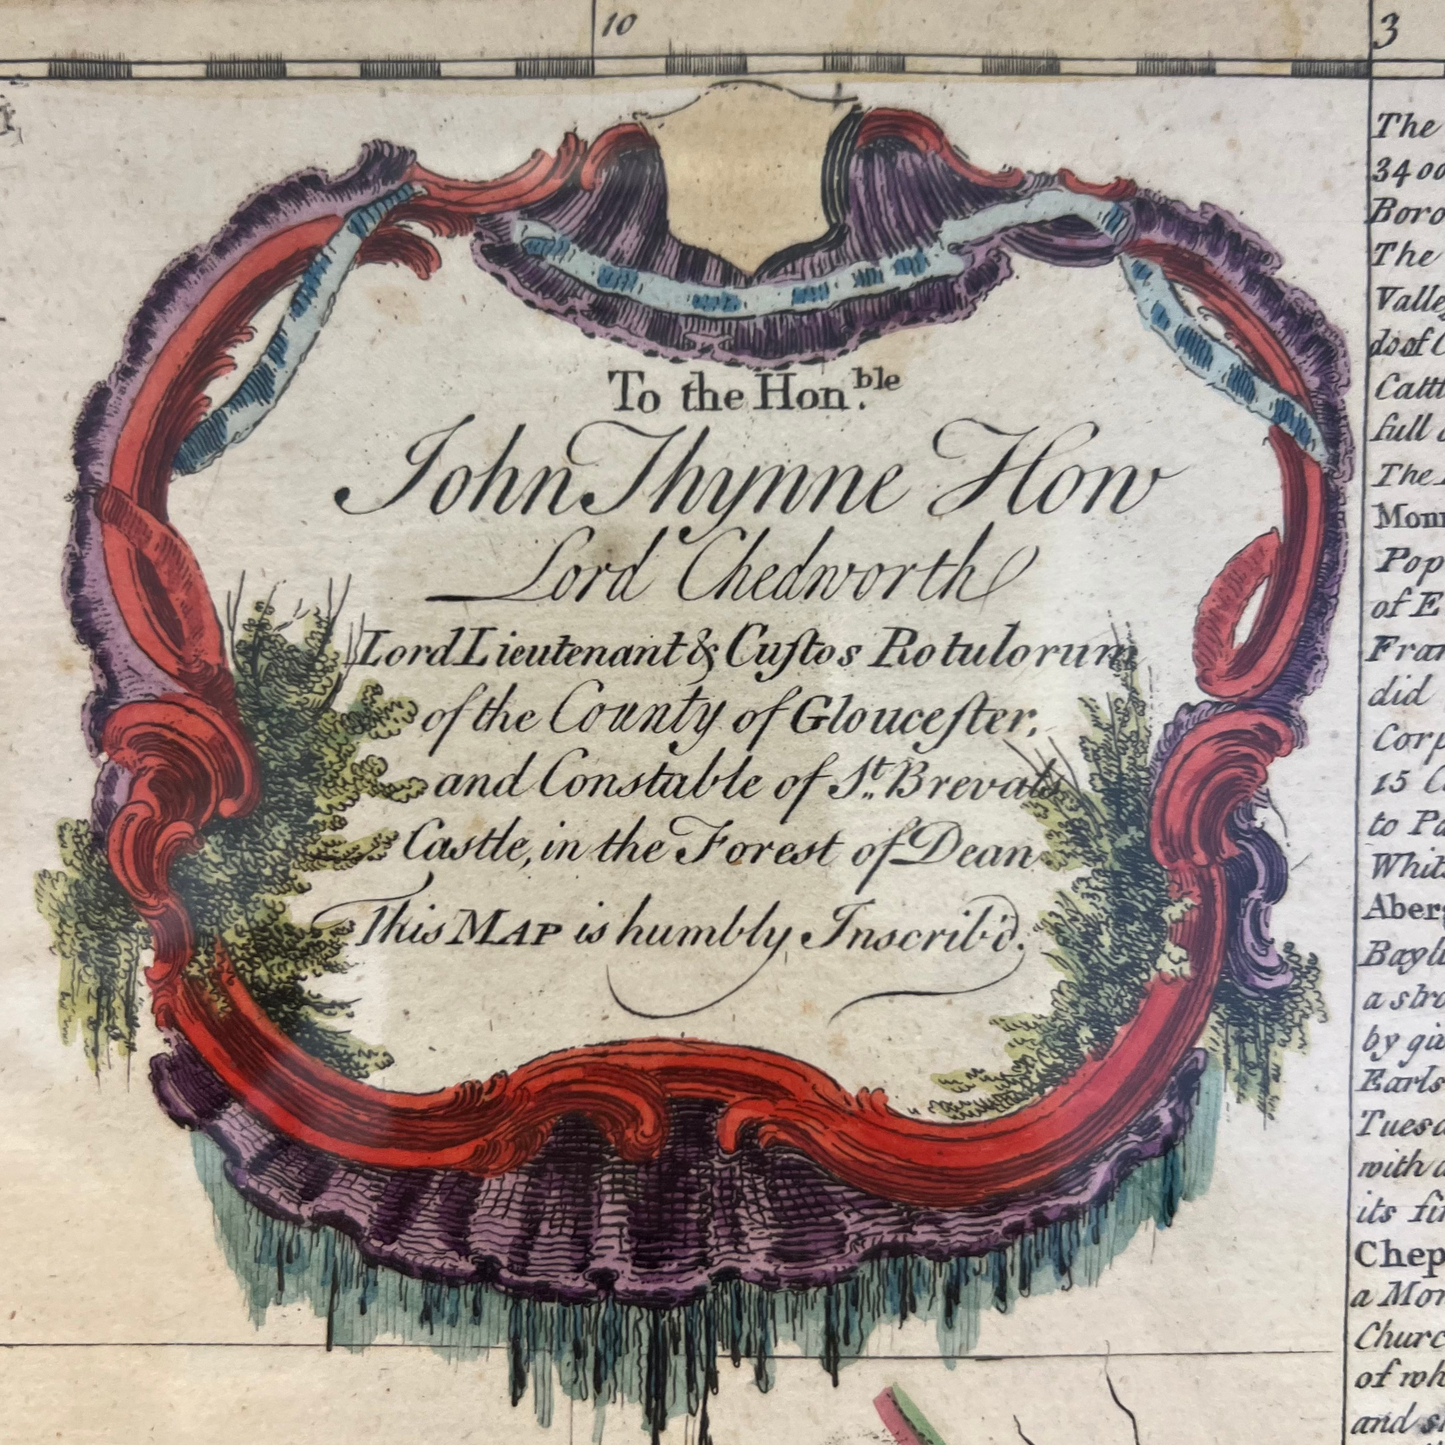 10
3
To the Hon.ble
John Thynne How
Lord Chedworth
Lord Lieutenant & Cuſtos Rotulorum
of the County of Glouceſter,
and Constable of St. Brevals
Castle, in the Forest of Dean
This MAP is humbly Inscrib'd.
The
3400
Boro
The
Valley
ds of C
Cattl
full
The
Monm
Pop
of E
Fran
did
Corp
15 C
to Pa
Whits
Aberg
Bayli
a stro
by giv
Earls
Tuesd
with a
its fin
Chep
a Mon
Churc
of wh
and s